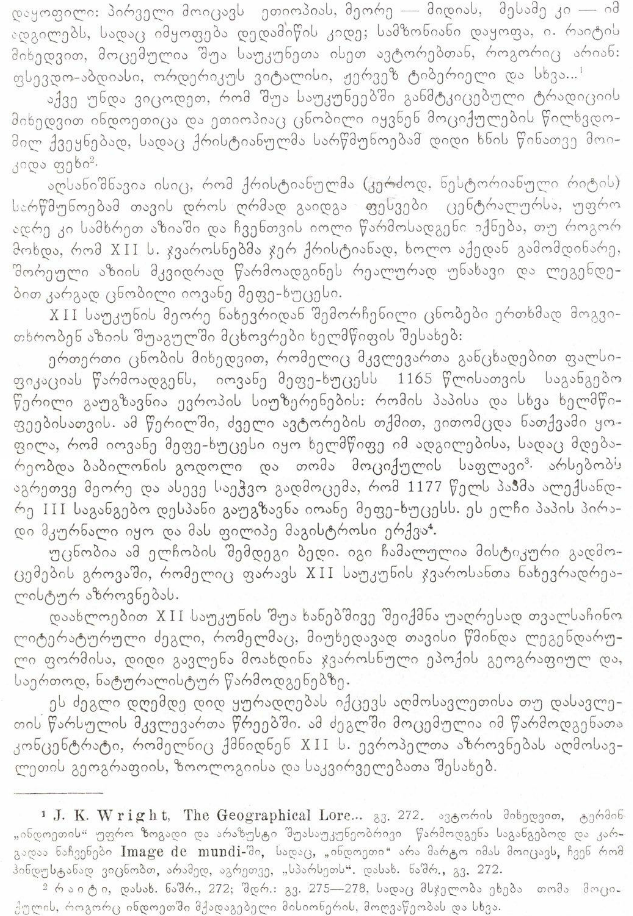 დაყოფილი: პირველი მოიცავს ეთიოპიას, მეორე — მიდიას, მესამე კი — იმ
ადგილებს, სადაც იმყოფება დედამიწის კიდე; სამზონიანი დაყოფა, ი. რაიტის
მიხედვით, მოცემულია შუა საუკუნეთა ისეთ ავტორებთან, როგორიც არიან:
ფსევდო-აბდიასი, ორდერიკუს ვიტალისი, ჟერვეზ ტიბერიელი და სხვა...¹
აქვე უნდა ვიცოდეთ, რომ შუა საუკუნეებში განმტკიცებული ტრადიციის
მიხედვით ინდოეთიცა და ეთიოპიაც ცნობილი იყვნენ მოციქულების წილხვდო-
მილ ქვეყნებად, სადაც ქრისტიანულმა სარწმუნოებამ დიდი ხნის წინათვე მოი-
კიდა ფეხი².
აღსანიშნავია ისიც, რომ ქრისტიანულმა (კერძოდ, ნესტორიანული რიტის)
სარწმუნოებამ თავის დროს ღრმად გაიდგა ფესვები ცენტრალურსა, უფრო
ადრე კი სამხრეთ აზიაში და ჩვენთვის იოლი წარმოსადგენი იქნება, თუ როგორ
მოხდა, რომ XII ს. ჯვაროსნებმა ჯერ ქრისტიანად, ხოლო აქედან გამომდინარე,
შორეული აზიის მკვიდრად წარმოადგინეს რეალურად უნახავი და ლეგენდე-
ბით კარგად ცნობილი იოვანე მეფე-ხუცესი.
XII საუკუნის მეორე ნახევრიდან შემორჩენილი ცნობები ერთხმად მოგვი-
თხრობენ აზიის შუაგულში მცხოვრები ხელმწიფის შესახებ:
ერთერთი ცნობის მიხედვით, რომელიც მკვლევართა განცხადებით ფალსი-
ფიკაციას წარმოადგენს, იოვანე მეფე-ხუცესს 1165 წლისათვის საგანგებო
წერილი გაუგზავნია ევროპის სიუზერენების: რომის პაპისა და სხვა ხელმწი-
ფეებისათვის. ამ წერილში, ძველი ავტორების თქმით, ვითომცდა ნათქვამი ყო-
ფილა, რომ იოვანე მეფე-ხუცესი იყო ხელმწიფე იმ ადგილებისა, სადაც მდება-
რეობდა ბაბილონის გოდოლი და თომა მოციქულის საფლავი³. არსებობს
აგრეთვე მეორე და ასევე საეჭვო გადმოცემა, რომ 1177 წელს პაპმა ალექსანდ-
რე III საგანგებო დესპანი გაუგზავნა იოანე მეფე-ხუცესს. ეს ელჩი პაპის პირა-
დი მკურნალი იყო და მას ფილიპე მაგისტროსი ერქვა⁴.
უცნობია ამ ელჩობის შემდეგი ბედი. იგი ჩამალულია მისტიკური გადმო-
ცემების გროვაში, რომელიც ფარავს XII საუკუნის ჯვაროსანთა ნახევრადრეა-
ლისტურ აზროვნებას.
დაახლოებით XII საუკუნის შუა ხანებშივე შეიქმნა უაღრესად თვალსაჩინო
ლიტერატურული ძეგლი, რომელმაც, მიუხედავად თავისი წმინდა ლეგენდარუ-
ლი ფორმისა, დიდი გავლენა მოახდინა ჯვაროსნული ეპოქის გეოგრაფიულ და,
საერთოდ, ნატურალისტურ წარმოდგენებზე.
ეს ძეგლი დღემდე დიდ ყურადღებას იქცევს აღმოსავლეთისა თუ დასავლე-
თის წარსულის მკვლევართა წრეებში. ამ ძეგლში მოცემულია იმ წარმოდგენათა
კონცენტრატი, რომელნიც ქმნიდნენ XII ს. ევროპელთა აზროვნებას აღმოსავ-
ლეთის გეოგრაფიის, ზოოლოგიისა და საკვირველებათა შესახებ.
¹ J. K. Wright, The Geographical Lore... გვ. 272. ავტორის მიხედვით, ტერმინ
„ინდოეთის“ უფრო ზოგადი და არაზუსტი შუასაუკუნეობრივი წარმოდგენა საგანგებოდ და კარ-
გადაა ნაჩვენები Image de mundi-ში, სადაც, „ინდოეთი“ არა მარტო იმას მოიცავს, ჩვენ რომ
ჰინდუსტანად ვიცნობთ, არამედ, აგრეთვე, „სპარსეთს“. დასახ. ნაშრ., გვ. 272.
² რაიტი, დასახ. ნაშრ., 272; შდრ.: გვ. 275—278, სადაც მსჯელობა ეხება თომა მოცი-
ქულის, როგორც ინდოეთში მქადაგებელი მისიონერის, მოღვაწეობას და სხვა.